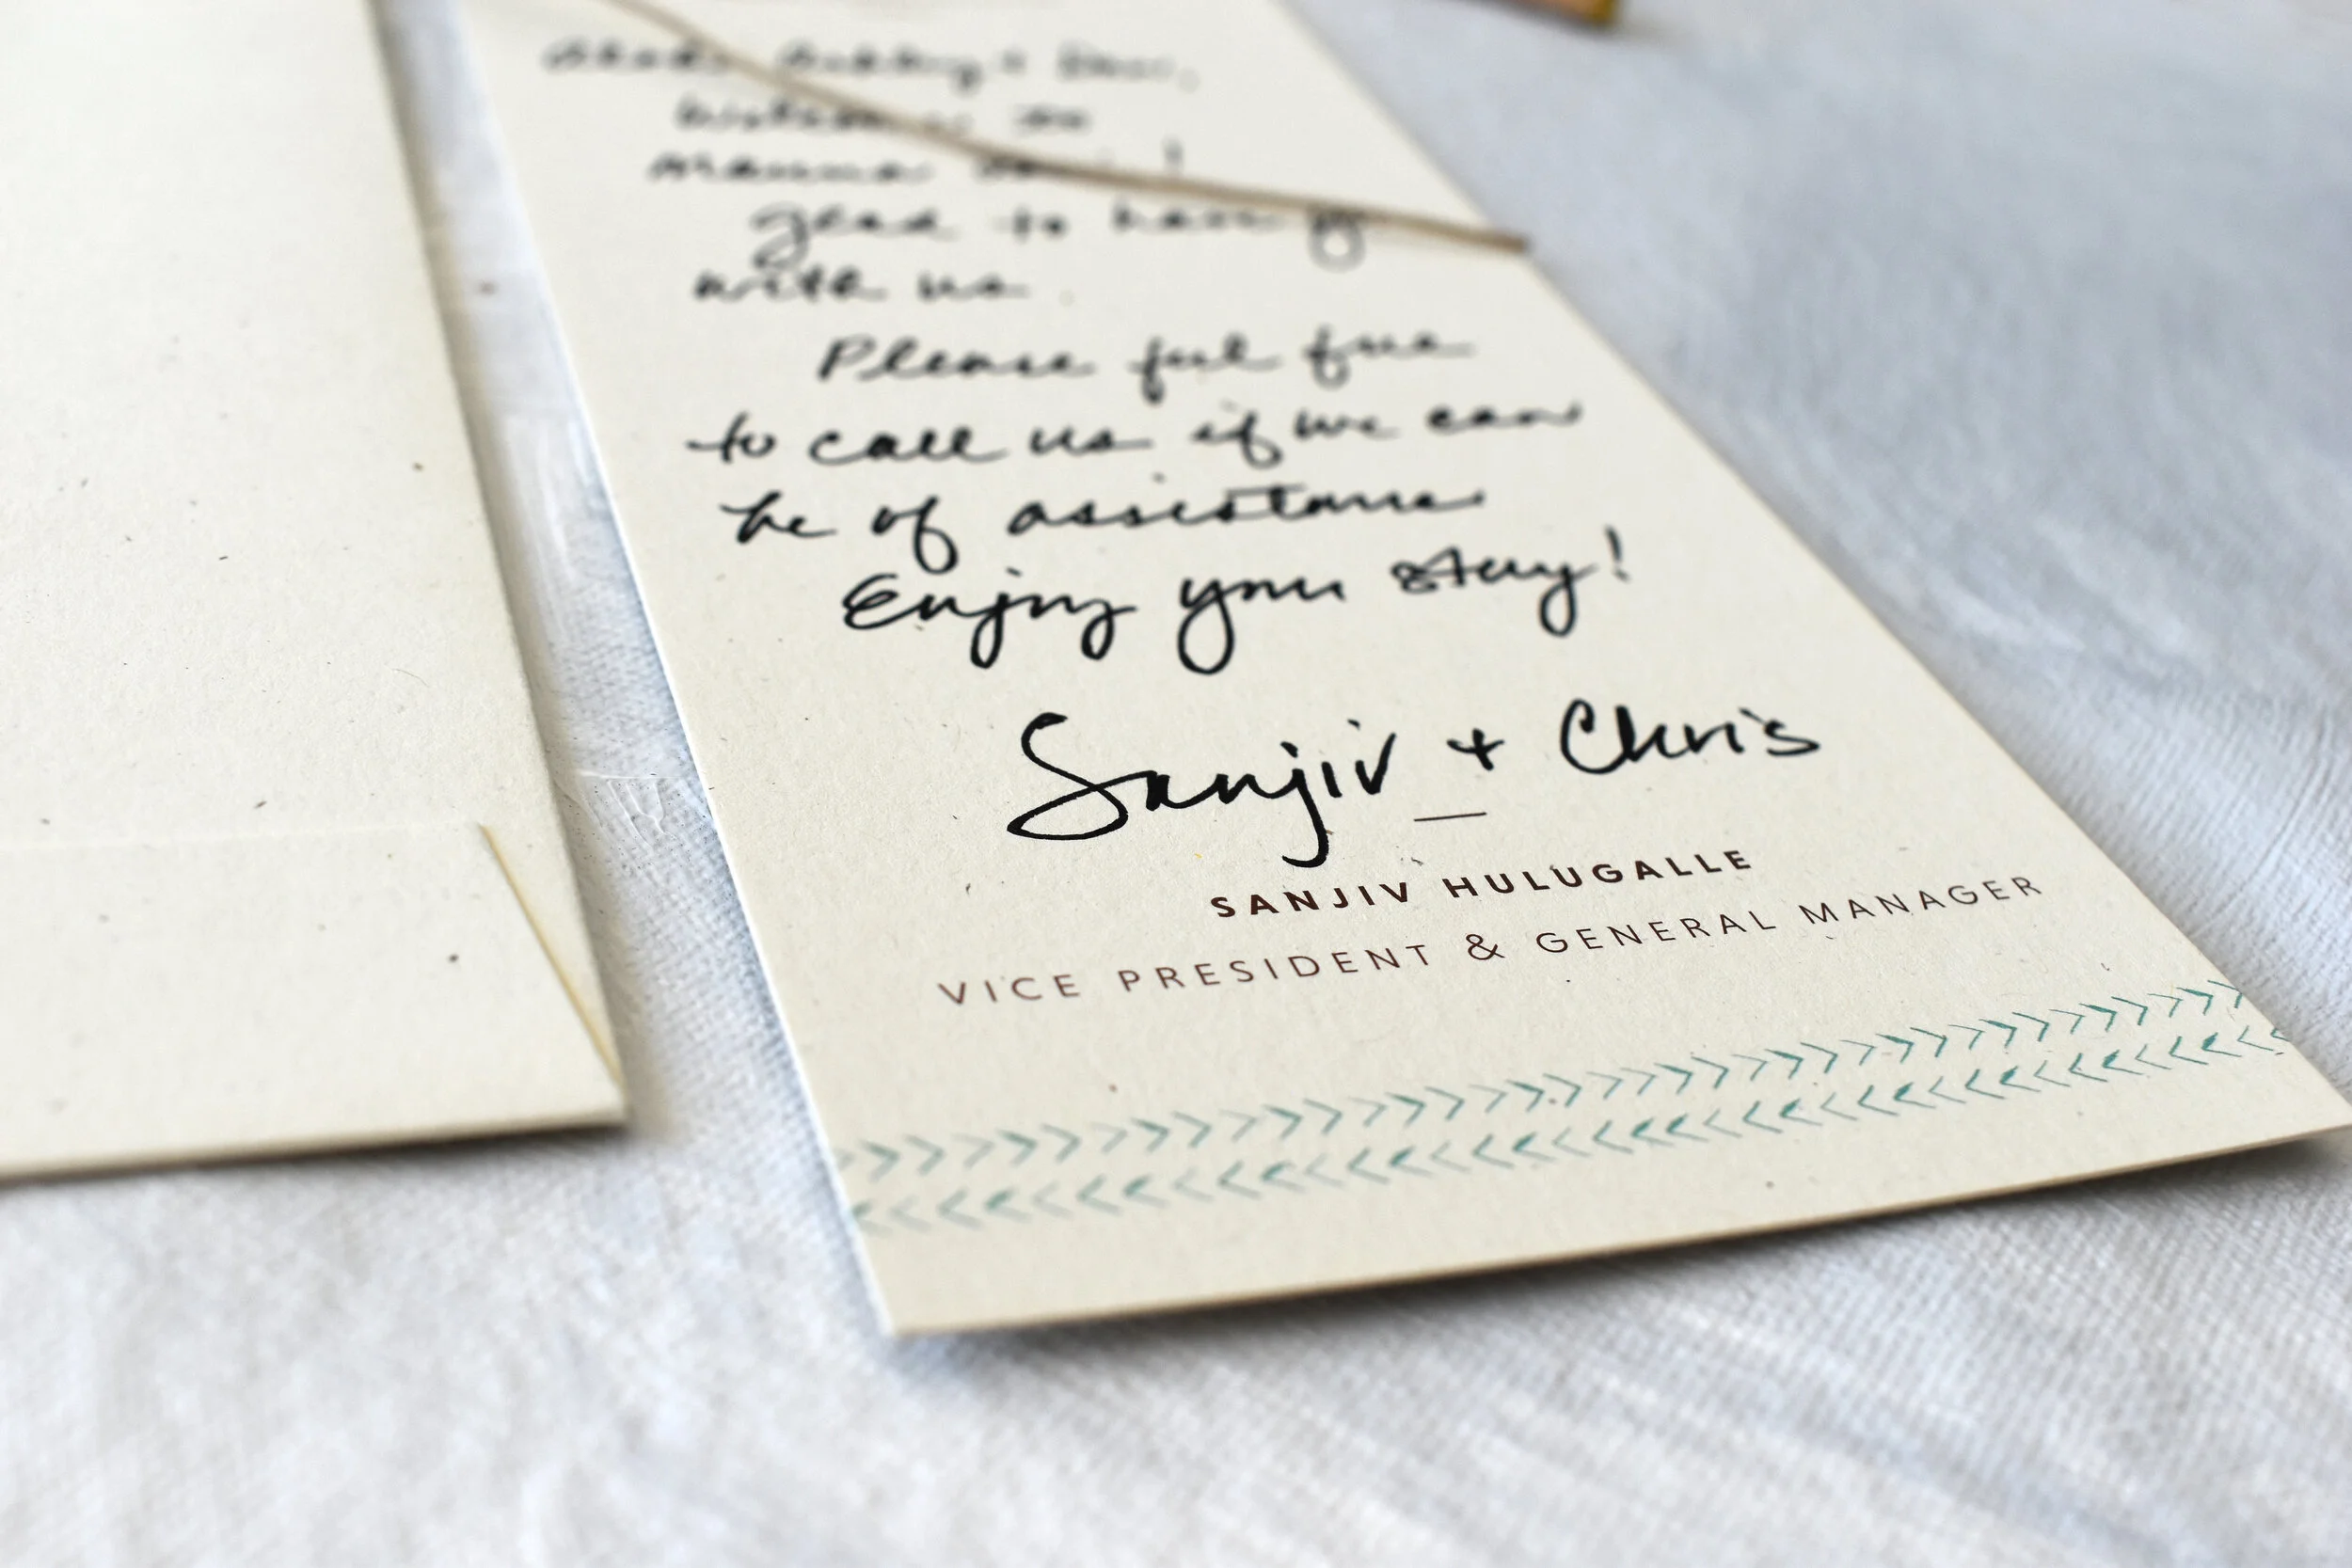 Welcome to
glad to have
with us.
Please feel free
to call us if we can
be of assistance
Enjoy your stay!
Sanjiv + Chris
SANJIV HULUGALLE
VICE PRESIDENT & GENERAL MANAGER